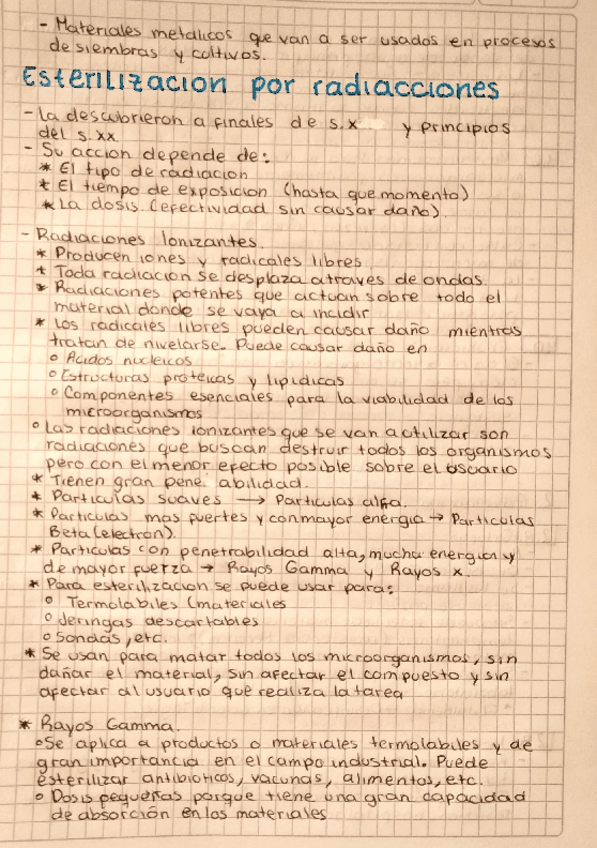 - Materiales metalicos que van a ser usados en procesos
de siembras y cultivos.
Esterilizacion por radiacciones
- La descubrieron a finales de s.x y principios
del s. xx
- Su accion depende de:
* El tipo de radiacion
* El tiempo de exposicion (hasta que momento)
* La dosis (efectividad sin causar daño)
- Radiaciones Ionizantes.
* Producen iones y radicales libres
* Toda radiacion se desplaza a traves de ondas.
* Radiaciones potentes que actuan sobre todo el
material donde se vaya a incidir
* Los radicales libres pueden causar daño mientras
tratan de nivelarse. Puede causar daño en
o Acidos nucleicos
o Estructuras proteicas y lipidicas
o Componentes esenciales para la viabilidad de los
microorganismos
o Las radiaciones ionizantes que se van a utilizar son
radiaciones que buscan destruir todos los organismos
pero con el menor efecto posible sobre el usuario
* Tienen gran pene abilidad.
* Particulas suaves → Particulas alfa.
* Particulas mas fuertes y con mayor energia → Particulas
Beta (electron).
* Particulas con penetrabilidad alta, mucha energia y
de mayor fuerza → Rayos Gamma y Rayos x.
* Para esterilizacion se puede usar para:
o Termolabiles (materiales
o Jeringas descartables
o Sondas, etc.
* Se usan para matar todos los microorganismos, sin
dañar el material, sin afectar el compuesto y sin
afectar al usuario que realiza la tarea
* Rayos Gamma.
o Se aplica a productos o materiales termolabiles y de
gran importancia en el campo industrial. Puede
esterilizar antibioticos, vacunas, alimentos, etc.
o Dosis pequeñas porque tiene una gran capacidad
de absorción en los materiales